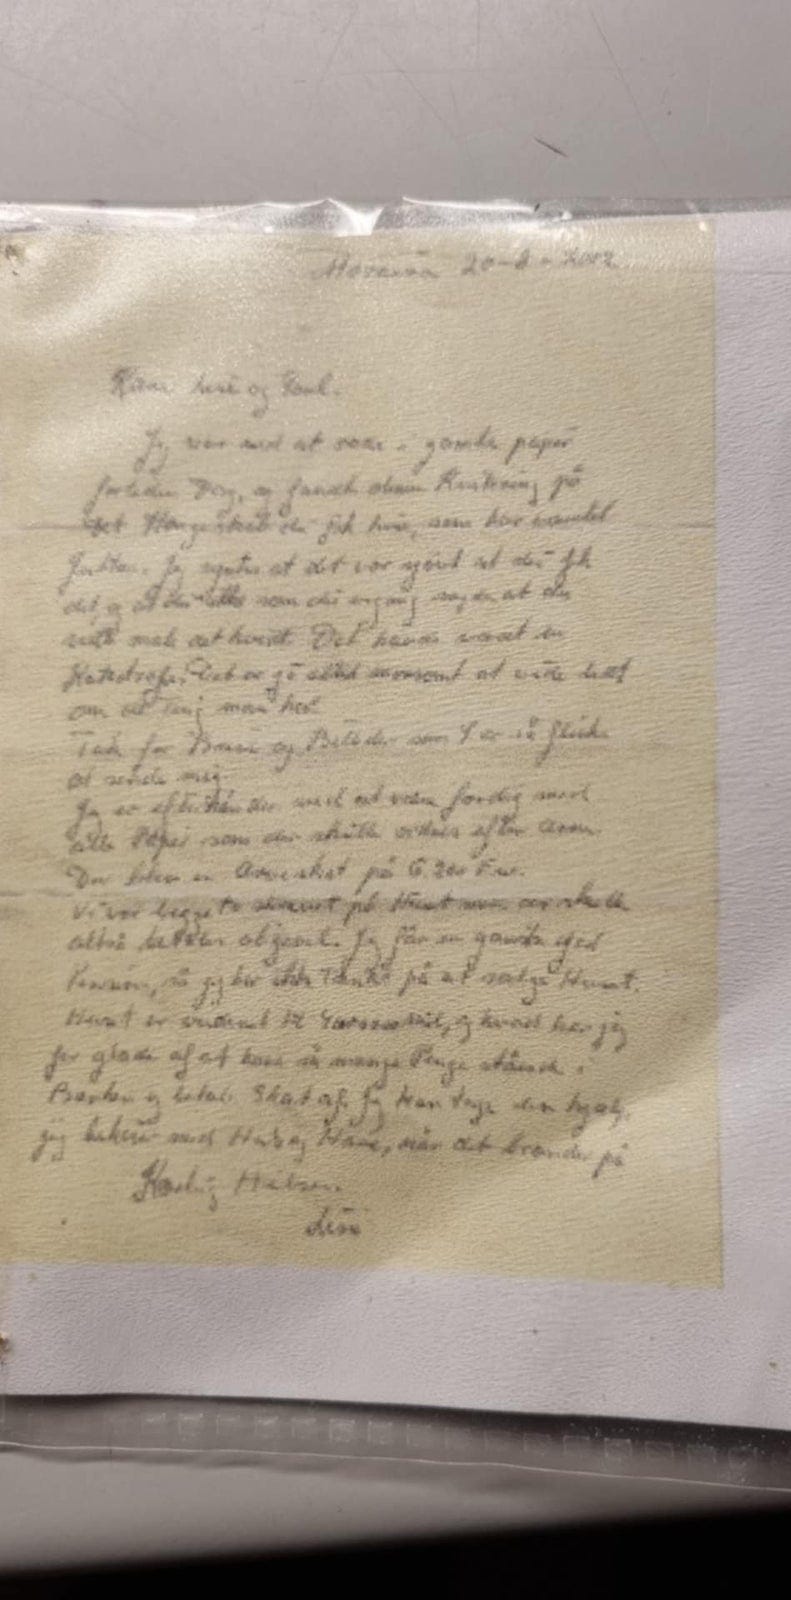 Moraira 20-8-2002
Kære og Poul.
Jeg var ved at rode i gamle papir
forleden Dag, og fandt denne på
det Hængeskab du fik som har
Jeg synes at det var at du fik
det, og at du ikke som du engang sagde at du
ville male det hvidt. Det havde været en
Katastrofe. Det er jo altid morsomt at vide lidt
om de ting man har.
Tak for Breve og Billeder som I er så flinke
at sende mig.
Jeg er efterhånden ved at være færdig med
alle Papir som der skulle ordnes efter
Der blev en Arveskat på 6.200
Vi var begge to på Huset men der skulle
altså betales alligevel. Jeg får en ganske god
Pension, så jeg har ikke Tanke på at sælge Huset.
Huset er vurderet til og hvad har jeg
for glæde af at have så mange Penge stående i
Banken og betale Skat af. Jeg kan tage den hjælp,
jeg behøver med Hus og Have, når det brænder på
Kærlig Hilsen